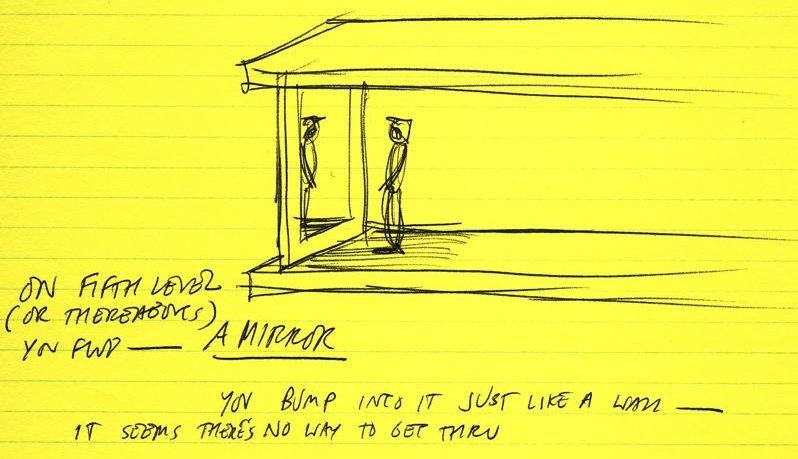 ON FIFTH LEVEL
(OR THEREABOUTS)
YOU FIND — A MIRROR
YOU BUMP INTO IT JUST LIKE A WALL —
IT SEEMS THERE'S NO WAY TO GET THRU